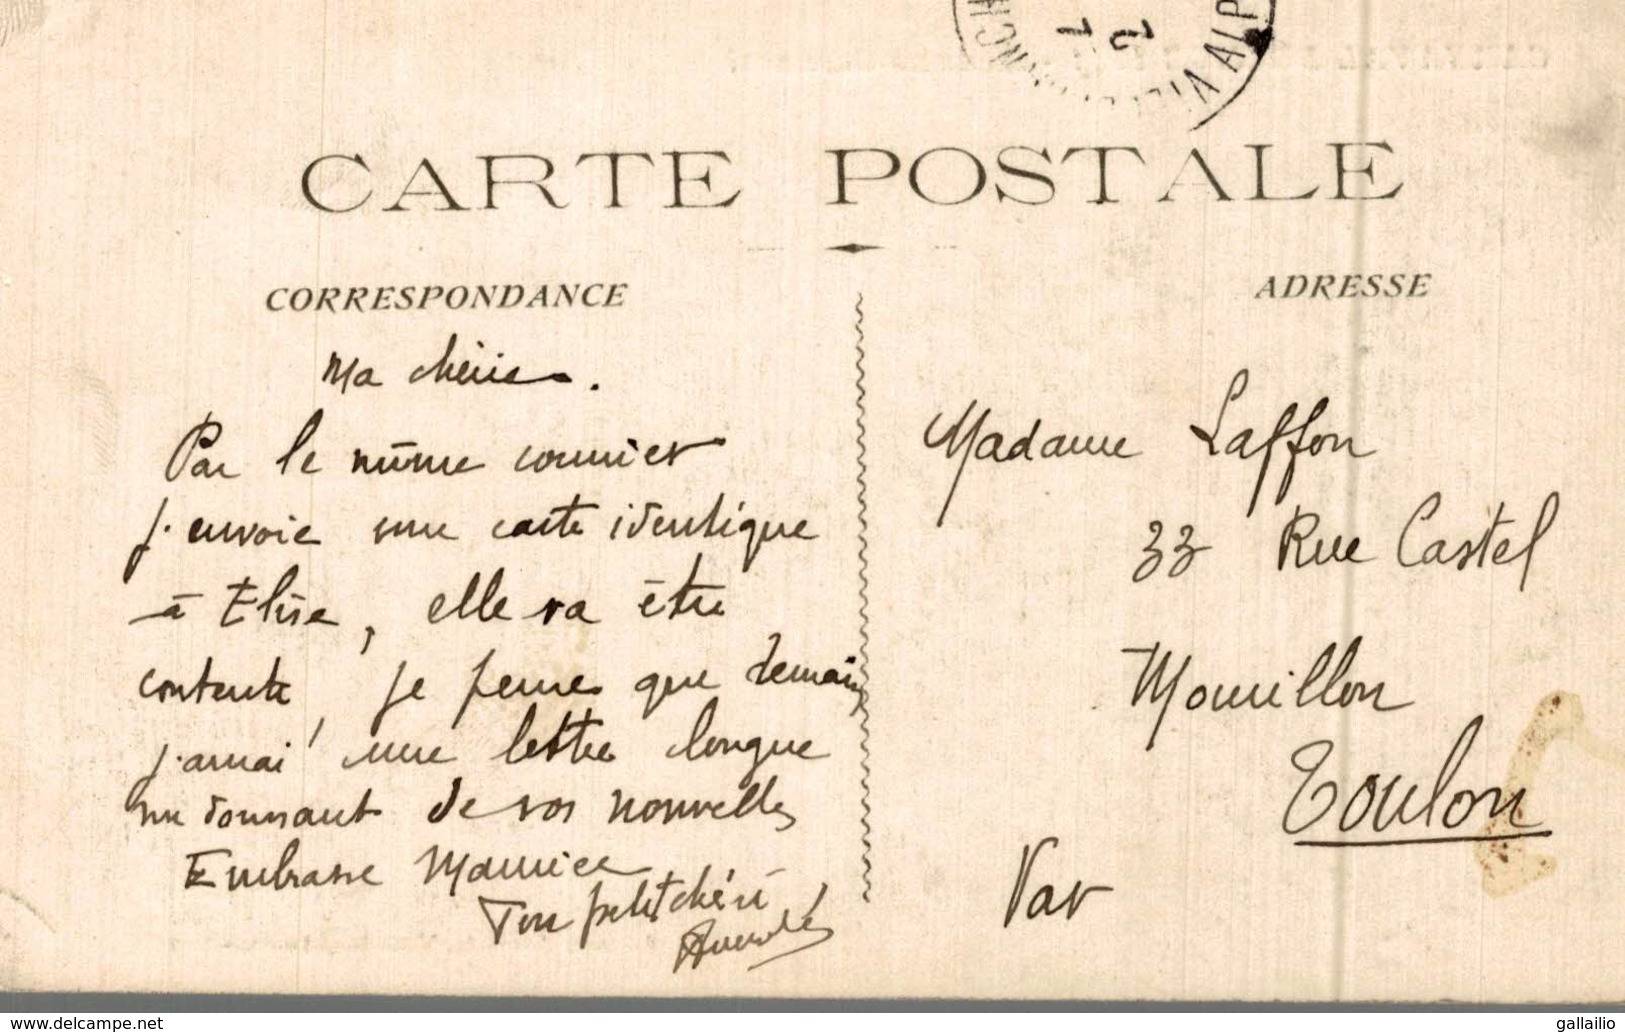 CARTE POSTALE
CORRESPONDANCE
Ma chérie.
Par le même courrier
j'envoie une carte identique
à Elise, elle va être
contente, je pense que demain
j'aurai une lettre longue
me donnant de vos nouvelles
Embrasse Maurice
Ton petit chéri
ADRESSE
Madame Laffon
33 Rue Castel
Mourillon
Toulon
Var
www.delcampe.net
gallailio